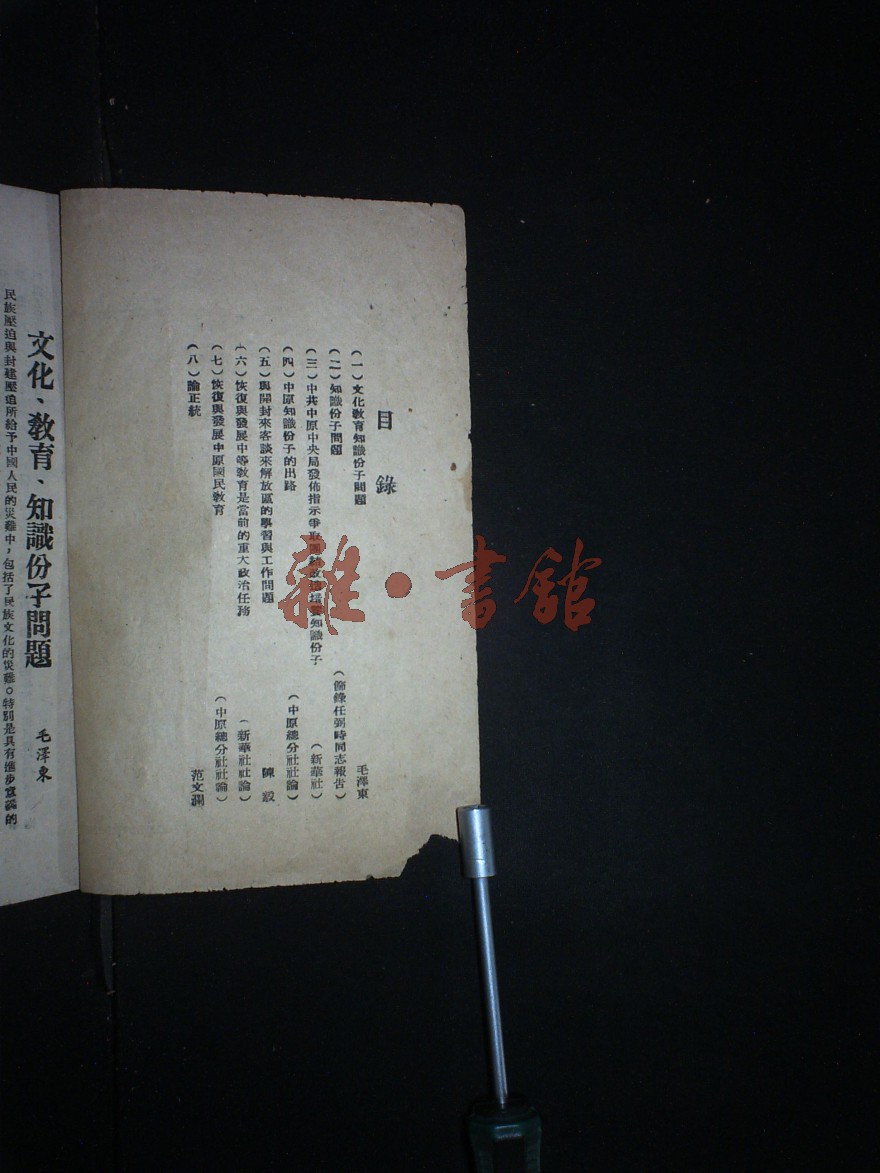 目錄
(一)文化教育知識份子問題 毛澤東
(二)知識份子問題 (節錄任弼時同志報告)
(三)中共中原中央局發佈指示爭取團結改造培養知識份子 (新華社)
(四)中原知識份子的出路 (中原總分社社論)
(五)與開封來客談來解放區的學習與工作問題 陳毅
(六)恢復與發展中等教育是當前的重大政治任務 (新華社社論)
(七)恢復與發展中原國民教育 (中原總分社社論)
(八)論正統 范文瀾
文化、教育、知識份子問題 毛澤東
民族壓迫與封建壓迫所給予中國人民的災難中，包括了民族文化的災難。特別是具有進步意義的
雜·書館